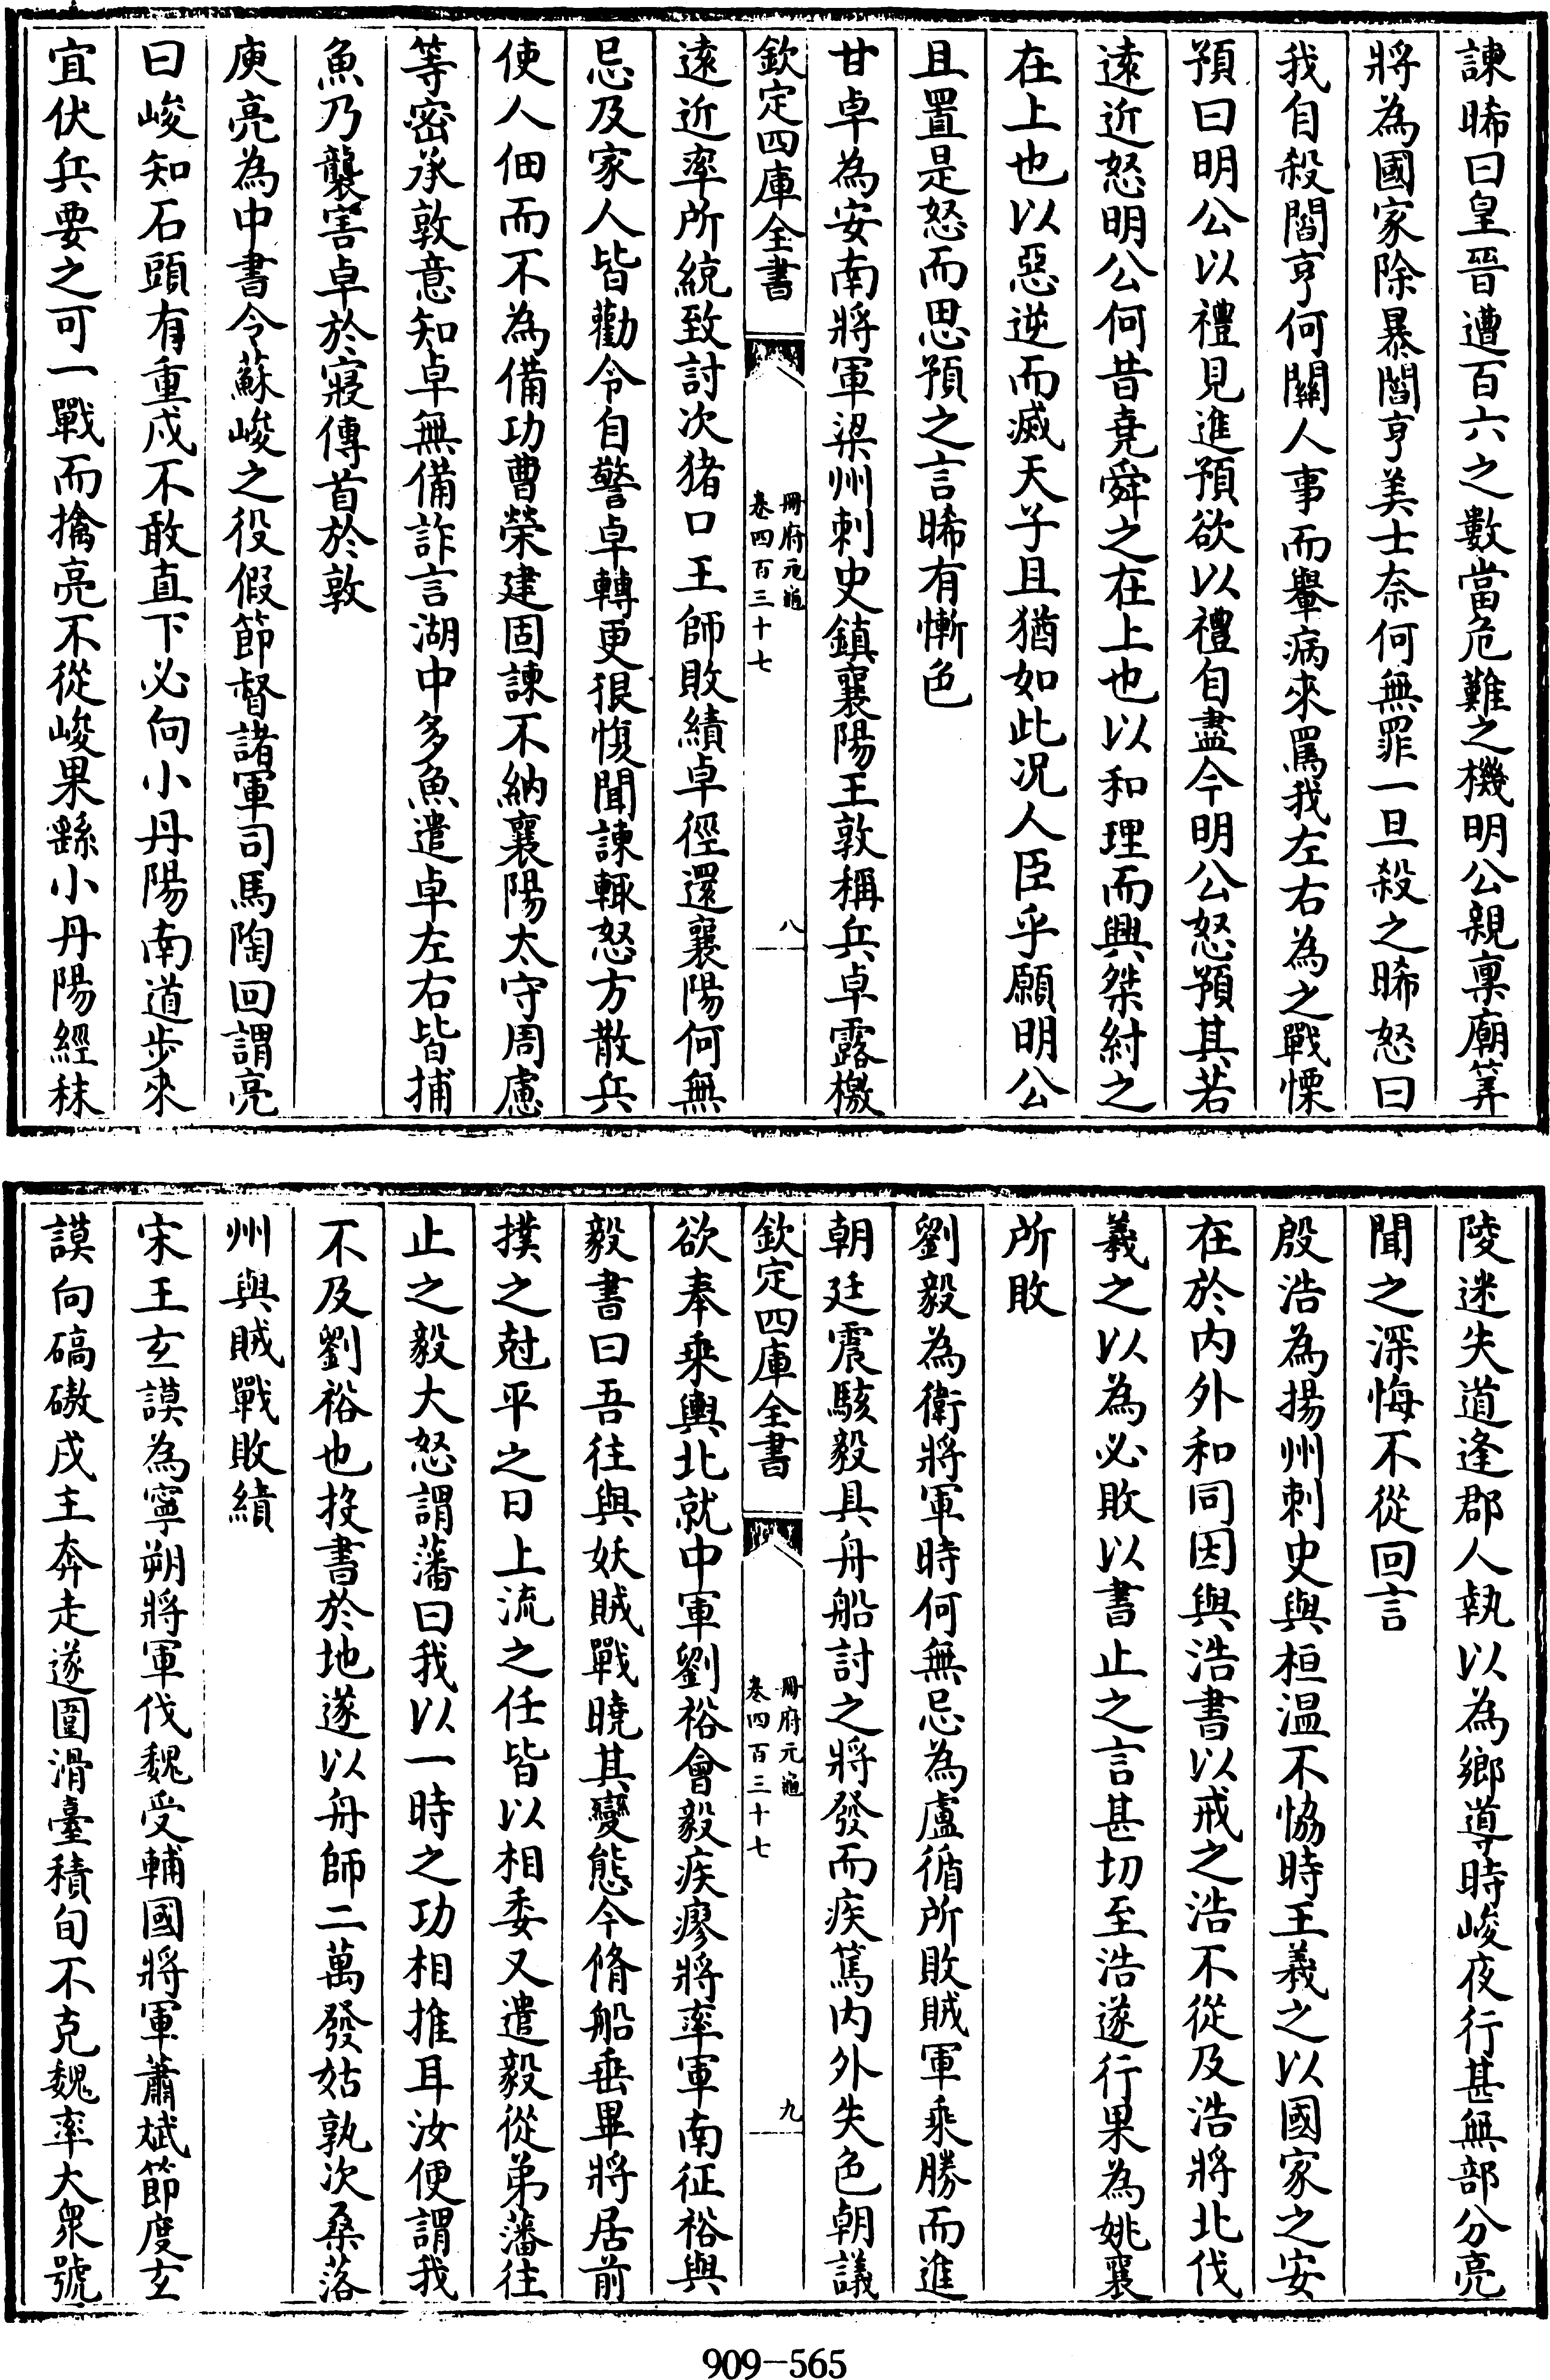 諫晞曰皇晉遭百六之數當危難之機明公親稟廟筭
將為國家除暴閻亨美士奈何無罪一旦殺之晞怒曰
我自殺閻亨何關人事而轝病來罵我左右為之戰慄
預曰明公以禮見進預欲以禮自盡今明公怒預其若
遠近怒明公何昔堯舜之在上也以和理而興桀紂之
在上也以惡逆而滅天子且猶如此况人臣乎願明公
且置是怒而思預之言晞有慚色
甘卓為安南將軍梁州刺史鎮襄陽王敦稱兵卓露檄
欽定四庫全書
冊府元龜
卷四百三十七
八
遠近率所統致討次猪口王師敗績卓徑還襄陽何無
忌及家人皆勸令自警卓轉更狠愎聞諫輒怒方散兵
使人佃而不為備功曹榮建固諫不納襄陽太守周慮
等密承敦意知卓無備詐言湖中多魚遣卓左右皆捕
魚乃襲害卓於寢傳首於敦
庾亮為中書令蘇峻之役假節督諸軍司馬陶回謂亮
曰峻知石頭有重戍不敢直下必向小丹陽南道步來
宜伏兵要之可一戰而擒亮不從峻果繇小丹陽經秣
陵迷失道逢郡人執以為鄉導時峻夜行甚無部分亮
聞之深悔不從回言
殷浩為揚州刺史與桓温不恊時王羲之以國家之安
在於内外和同因與浩書以戒之浩不從及浩將北伐
羲之以為必敗以書止之言甚切至浩遂行果為姚襄
所敗
劉毅為衛將軍時何無忌為盧循所敗賊軍乘勝而進
朝廷震駭毅具舟船討之將發而疾篤内外失色朝議
欽定四庫全書
冊府元龜
卷四百三十七
九
欲奉乘輿北就中軍劉裕會毅疾瘳將率軍南征裕與
毅書曰吾往與妖賊戰曉其變態今脩船垂畢將居前
撲之尅平之日上流之任皆以相委又遣毅從弟藩往
止之毅大怒謂藩曰我以一時之功相推耳汝便謂我
不及劉裕也投書於地遂以舟師二萬發姑孰次桑落
州與賊戰敗績
宋王玄謨為寧朔將軍伐魏受輔國將軍蕭斌節度玄
謨向碻磝戍主奔走遂圍滑臺積旬不克魏率大衆號
909-565